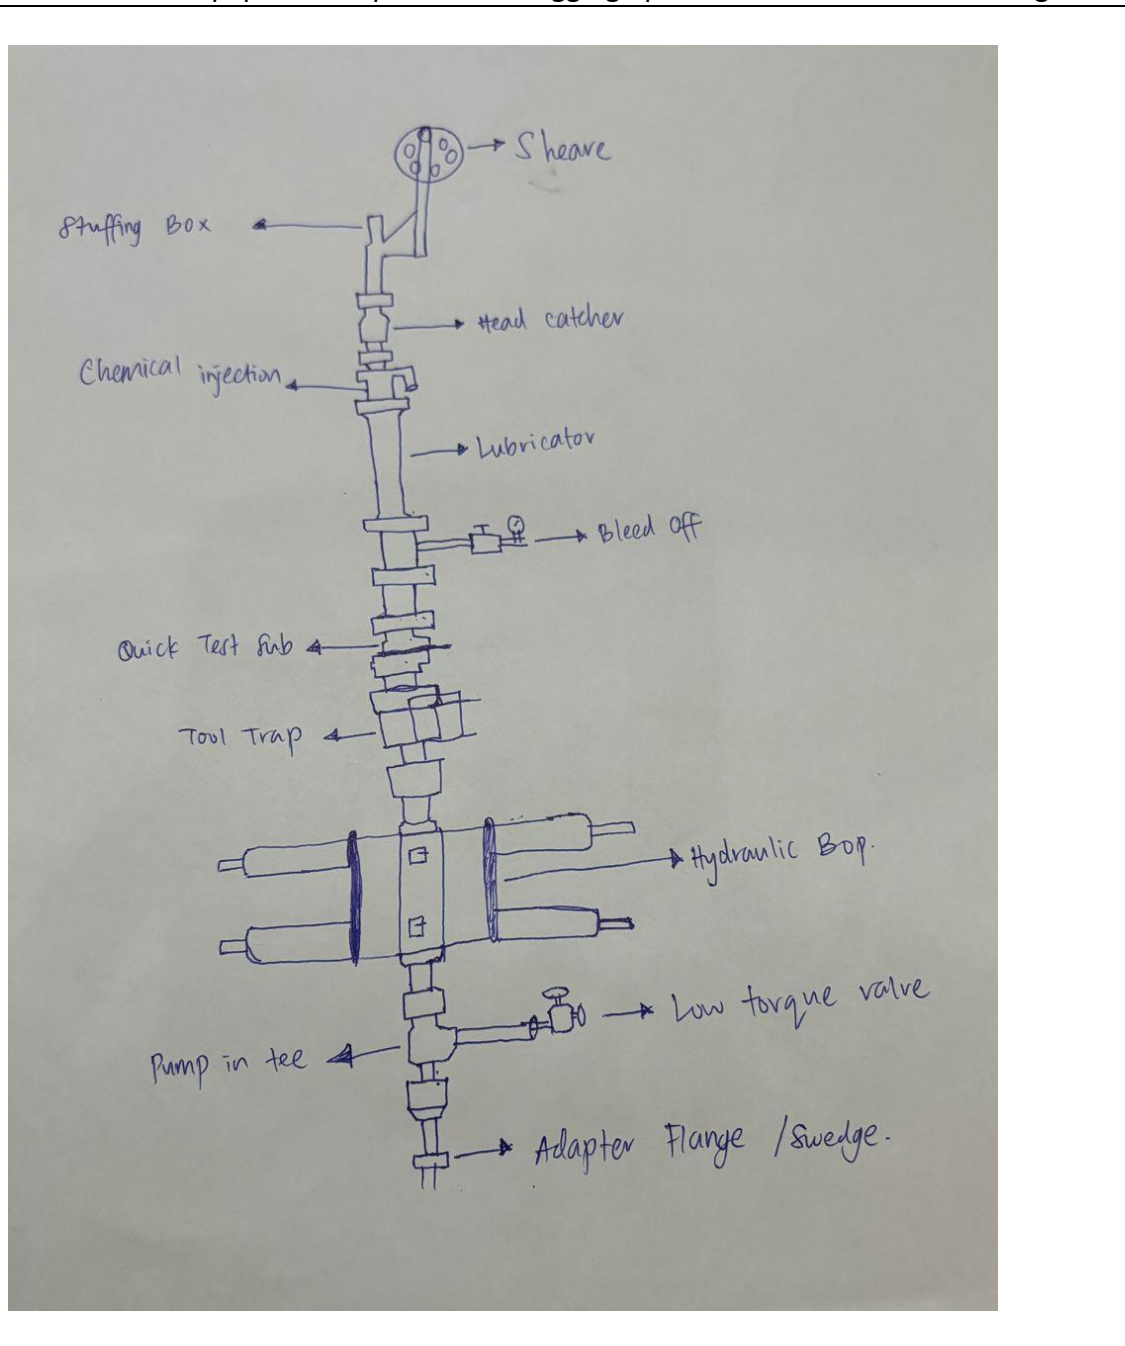 Sheave
Stuffing Box
Head catcher
Chemical injection
Lubricator
Bleed Off
Quick Test Sub
Tool Trap
Hydraulic Bop.
Low torque valve
Pump in tee
Adapter Flange / Swedge.